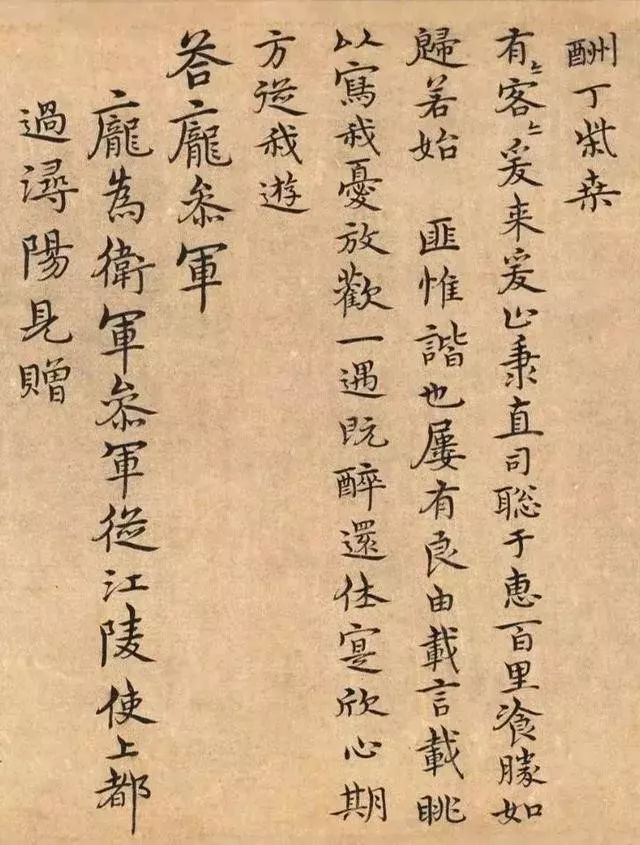 酬丁柴桒
有〻客〻爰来爰止秉直司聦于惠百里飡勝如
歸若始 匪惟諧也屢有良由載言載眺
以寫我憂放歡一遇既醉還休寔欣心期
方從我遊
荅龐叅軍
龐為衛軍叅軍從江陵使上都
過潯陽見贈